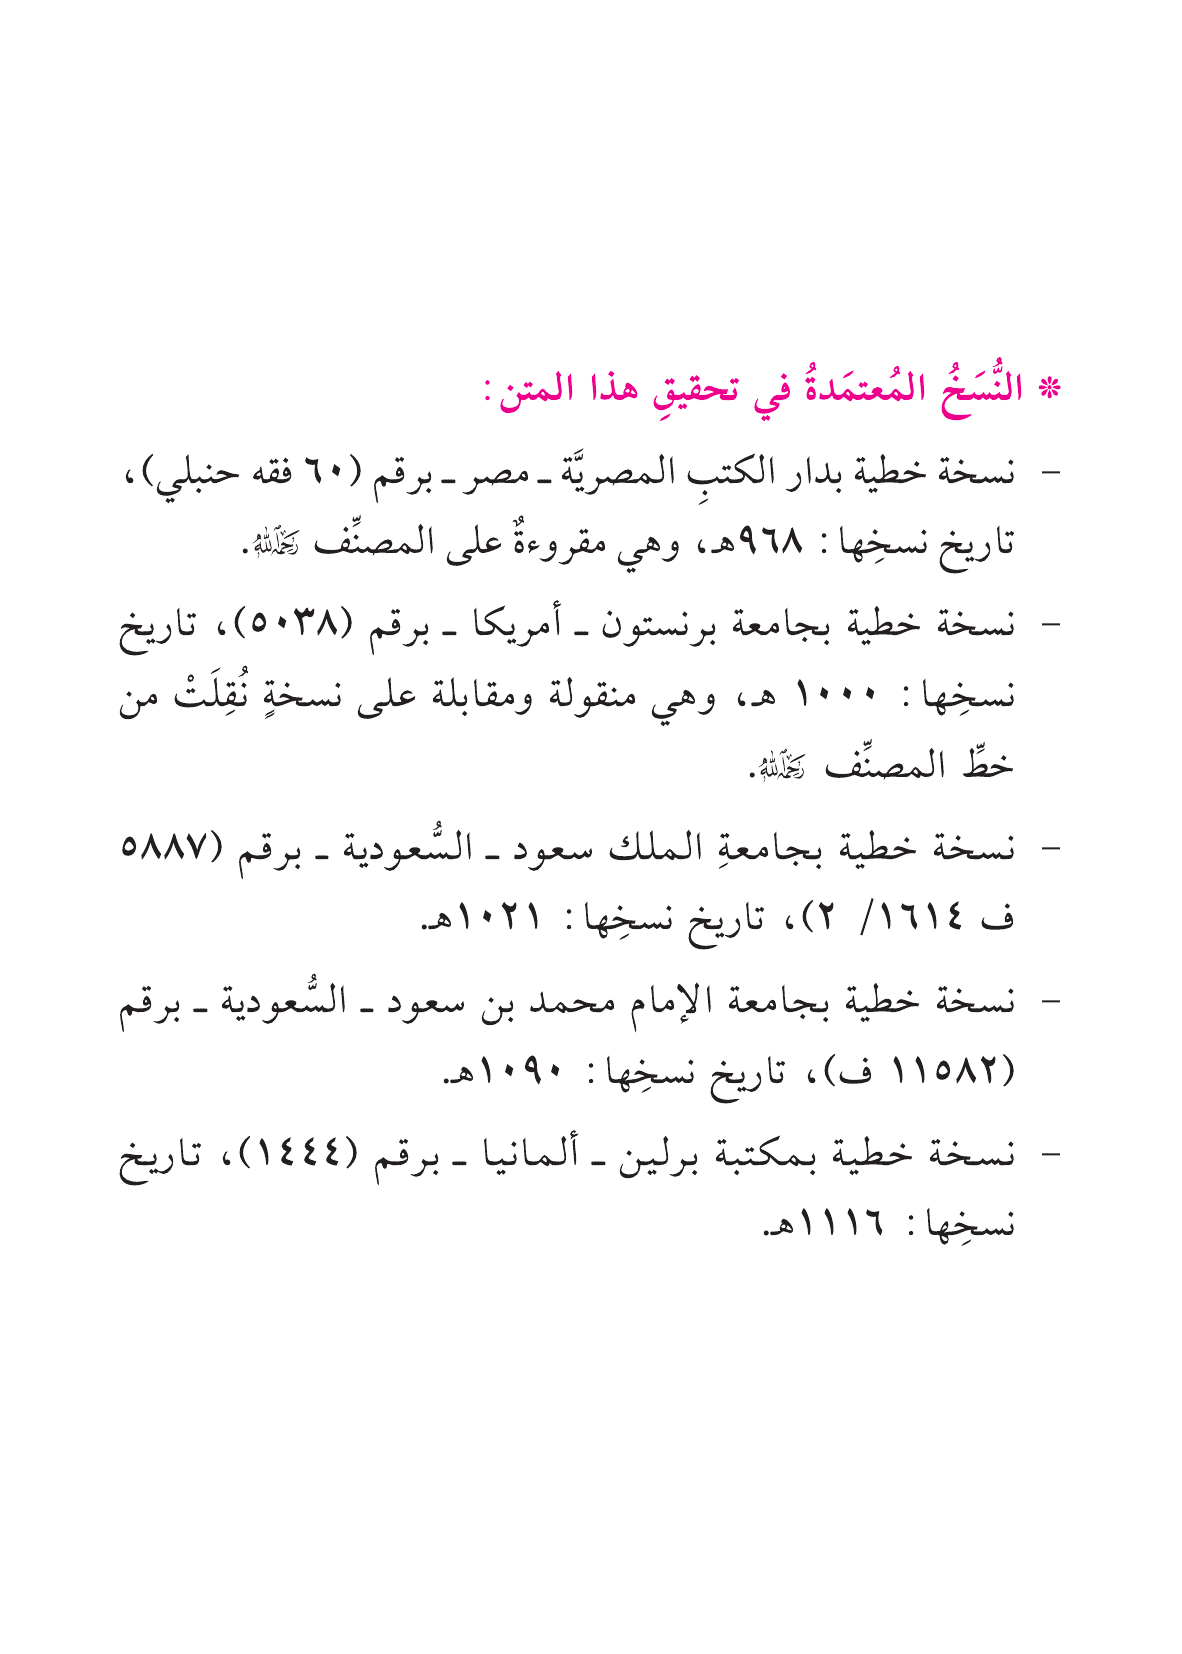 * النُّسَخُ المُعتمَدةُ في تحقيقِ هذا المتن:
- نسخة خطية بدار الكتبِ المصريَّة ـ مصر ـ برقم (٦٠ فقه حنبلي)،
تاريخ نسخِها: ٩٦٨هـ، وهي مقروءةٌ على المصنِّف رَحِمَهُ اللَّهُ.
- نسخة خطية بجامعة برنستون ـ أمريكا ـ برقم (٥٠٣٨)، تاريخ
نسخِها: ١٠٠٠ هـ، وهي منقولة ومقابلة على نسخةٍ نُقِلَتْ من
خطِّ المصنِّف رَحِمَهُ اللَّهُ.
- نسخة خطية بجامعةِ الملك سعود ـ السُّعودية ـ برقم (٥٨٨٧
ف ١٦١٤/ ٢)، تاريخ نسخِها: ١٠٢١هـ.
- نسخة خطية بجامعة الإمام محمد بن سعود ـ السُّعودية ـ برقم
(١١٥٨٢ ف)، تاريخ نسخِها: ١٠٩٠هـ.
- نسخة خطية بمكتبة برلين ـ ألمانيا ـ برقم (١٤٤٤)، تاريخ
نسخِها: ١١١٦هـ.